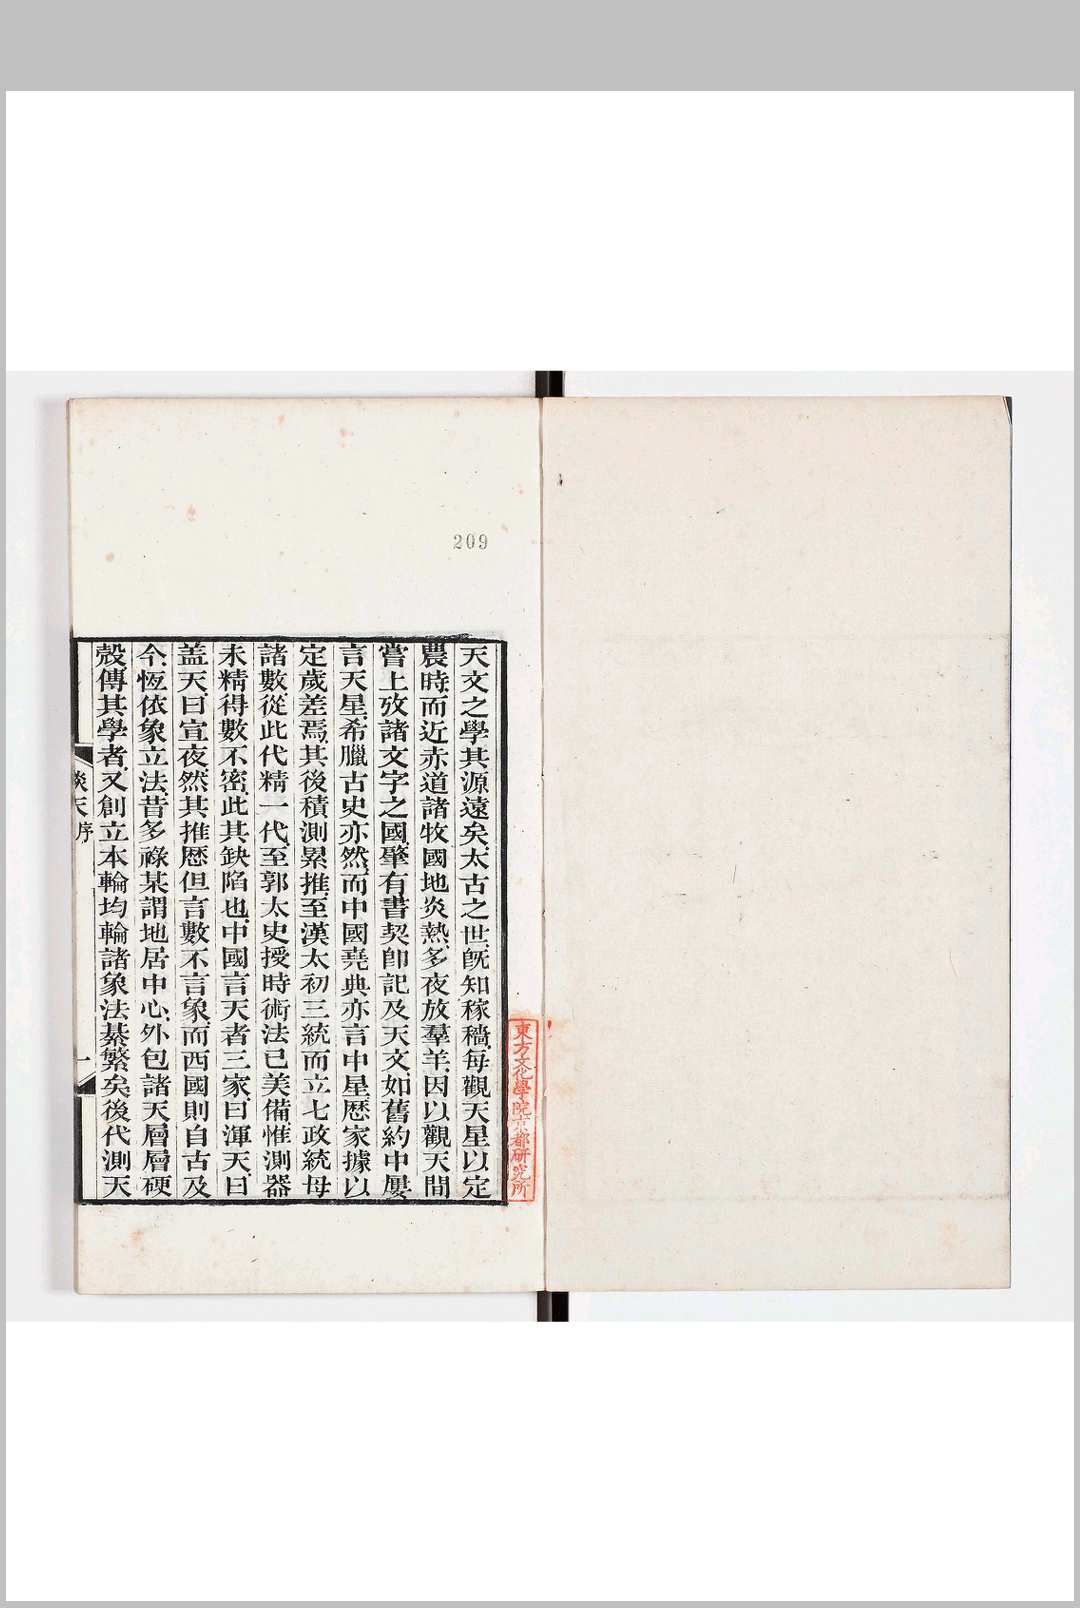 209
東方文化學院京都研究所
天文之學其源遠矣太古之世旣知稼穡每觀天星以定
農時而近赤道諸牧國地炎熱多夜放羣羊因以觀天間
嘗上攷諸文字之國肇有書契卽記及天文如舊約中屢
言天星希臘古史亦然而中國堯典亦言中星歷家據以
定歲差焉其後積測累推至漢太初三統而立七政統母
諸數從此代精一代至郭太史授時術法已美備惟測器
未精得數不密此其缺陷也中國言天者三家曰渾天曰
蓋天曰宣夜然其推歷但言數不言象而西國則自古及
今恆依象立法昔多祿某謂地居中心外包諸天層層硬
殼傳其學者又創立本輪均輪諸象法綦繁矣後代測天
談天序
一